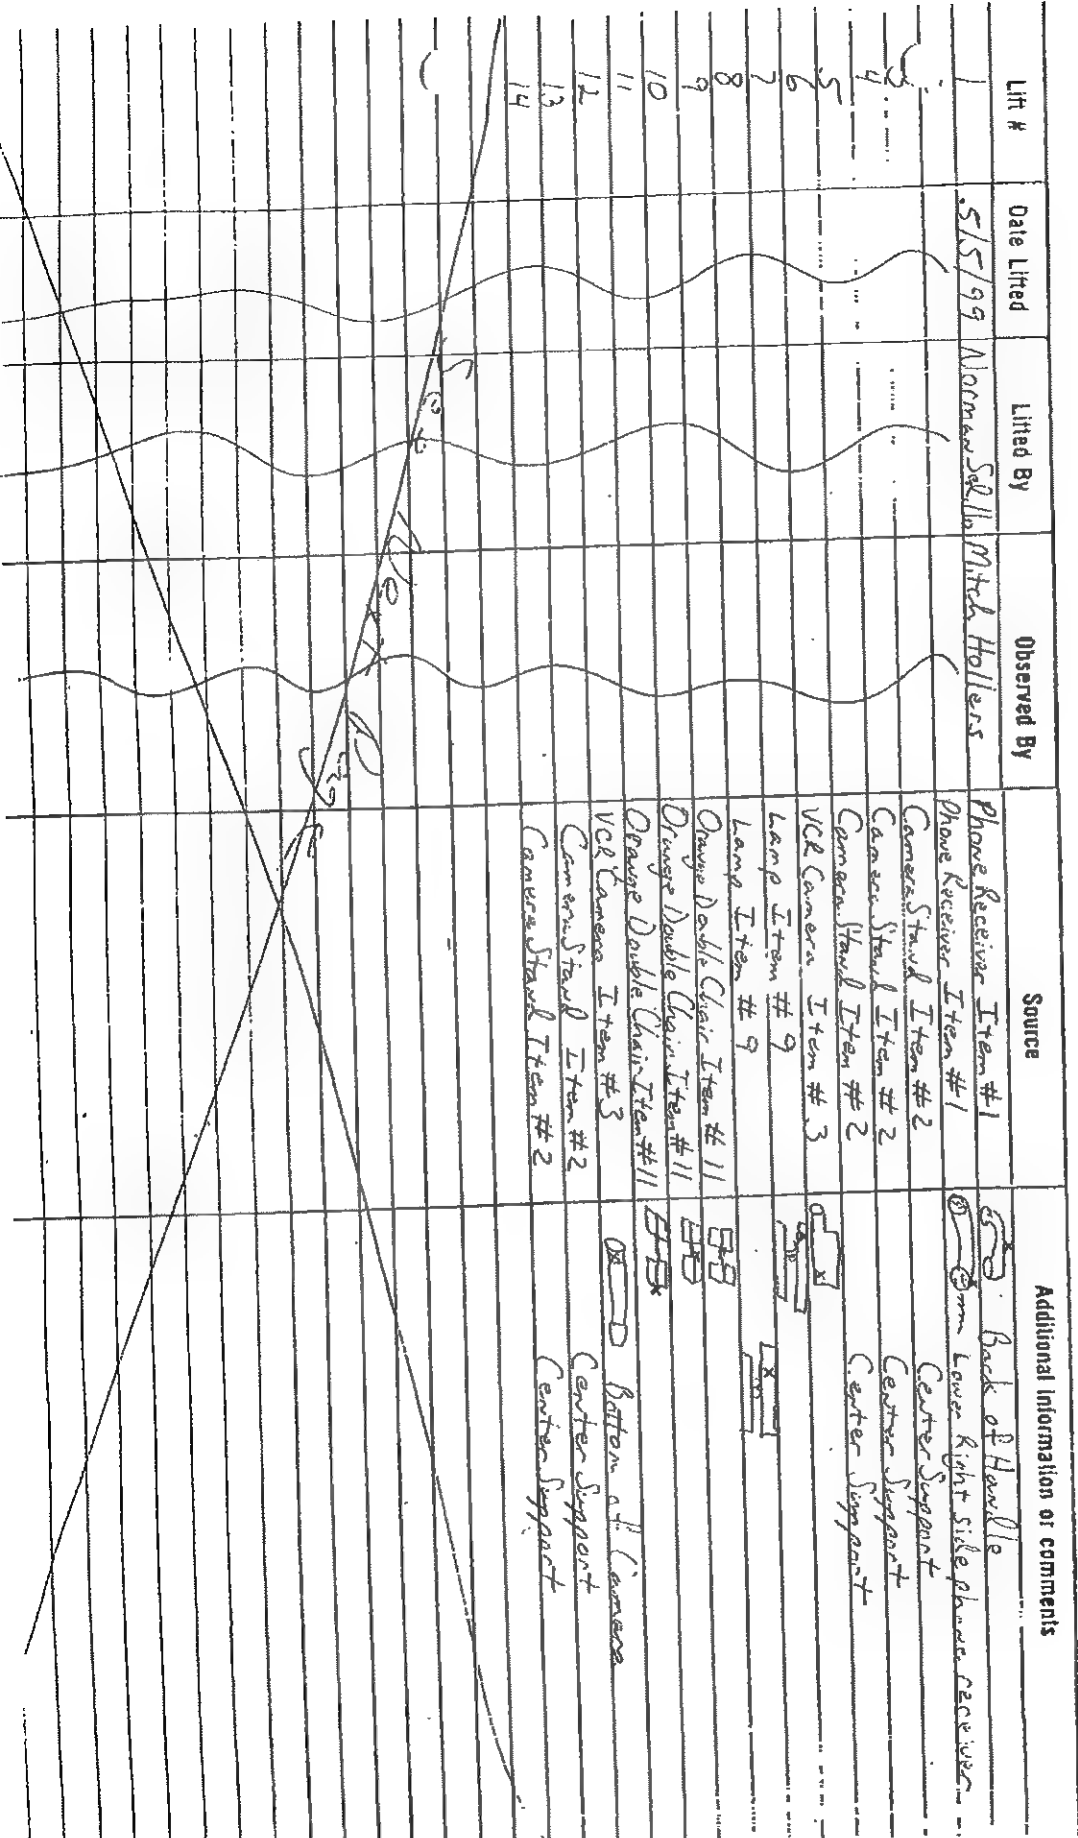 Lift # Date Lifted Lifted By Observed By Source Additional information or comments
1 5/5/99 Norman Mitch Hollers Phone Receiver Item #1 Back of Handle
Phone Receiver Item #1 Lower Right side phone receiver
3 Camera Stand Item #2 Center Support
4 Camera Stand Item #2 Center Support
5 Camera Stand Item #2 Center Support
6 VCR Camera Item #3
7 Lamp Item #9
8 Lamp Item #9
9 Orange Double Chair Item #11
10 Orange Double Chair Item #11
11 Orange Double Chair Item #11
12 VCR Camera Item #3 Bottom of Camera
13 Camera Stand Item #2 Center Support
14 Camera Stand Item #2 Center Support